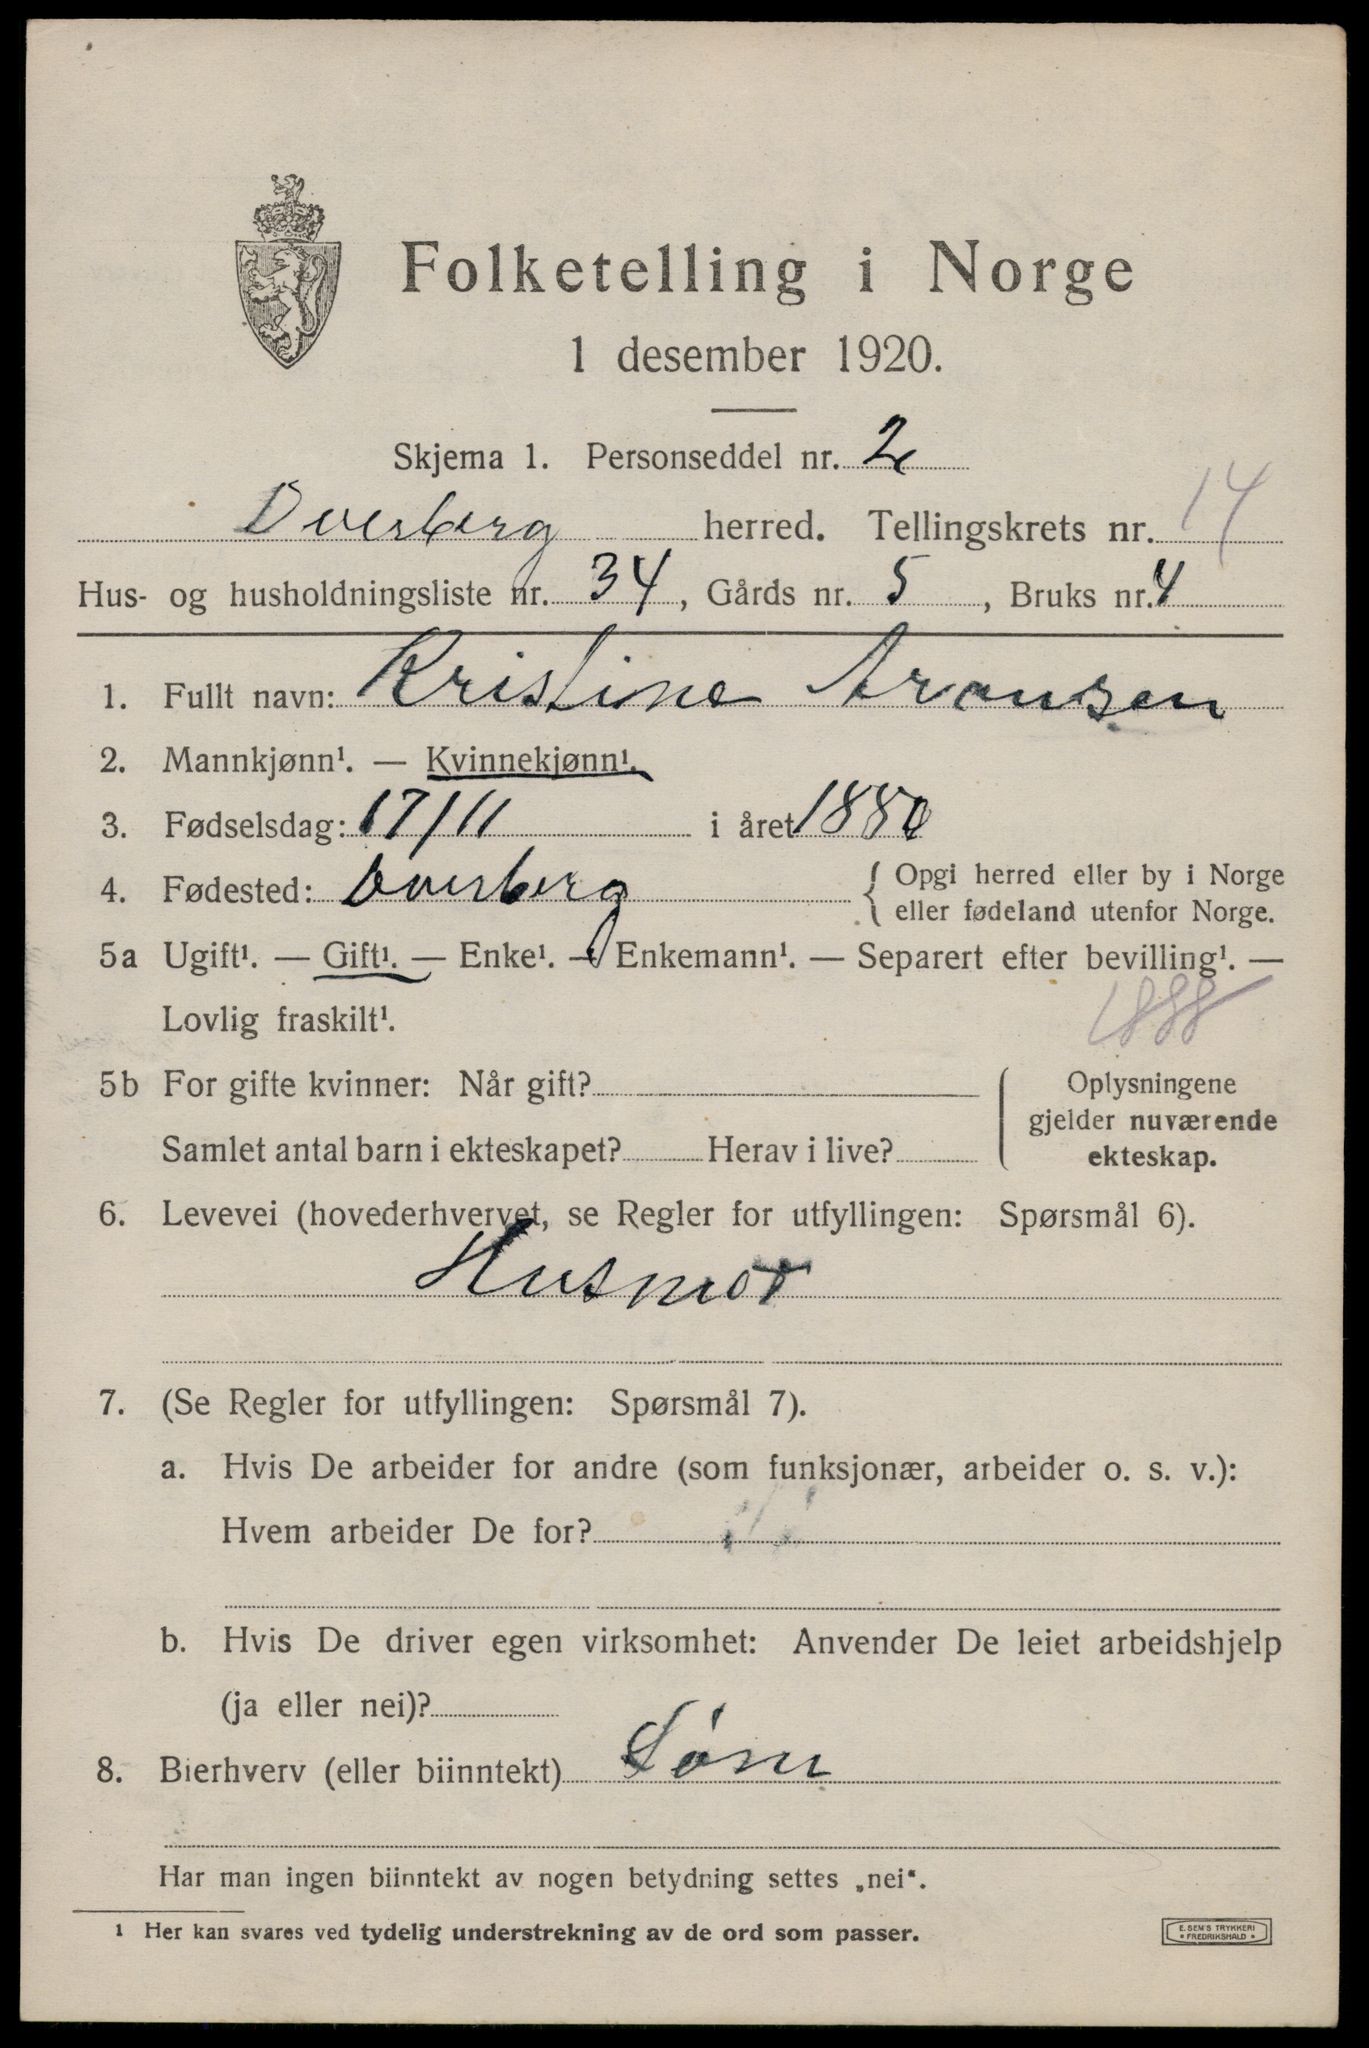 Folketelling i Norge
1 desember 1920.
Skjema 1. Personseddel nr. 2
Dverberg herred. Tellingskrets nr. 14
Hus- og husholdningsliste nr. 34, Gårds nr. 5, Bruks nr. 4
1. Fullt navn: Kristine Aronsen
2. Mannkjønn¹. — Kvinnekjønn¹.
3. Fødselsdag: 17/11 i året
4. Fødested: Dverberg { Opgi herred eller by i Norge
eller fødeland utenfor Norge.
5a Ugift¹. — Gift¹. — Enke¹. — Enkemann¹. — Separert efter bevilling¹. —
Lovlig fraskilt¹.
1888
5b For gifte kvinner: Når gift? { Oplysningene
gjelder nuværende
Samlet antal barn i ekteskapet? Herav i live?
ekteskap.
6. Levevei (hovederhvervet, se Regler for utfyllingen: Spørsmål 6).
Husmor
7. (Se Regler for utfyllingen: Spørsmål 7).
a. Hvis De arbeider for andre (som funksjonær, arbeider o. s. v.):
Hvem arbeider De for?
b. Hvis De driver egen virksomhet: Anvender De leiet arbeidshjelp
(ja eller nei)?
8. Bierhverv (eller biinntekt) Søm
Har man ingen biinntekt av nogen betydning settes „nei“.
1 Her kan svares ved tydelig understrekning av de ord som passer.
E. SEM'S TRYKKERI
* FREDRIKSHALD *